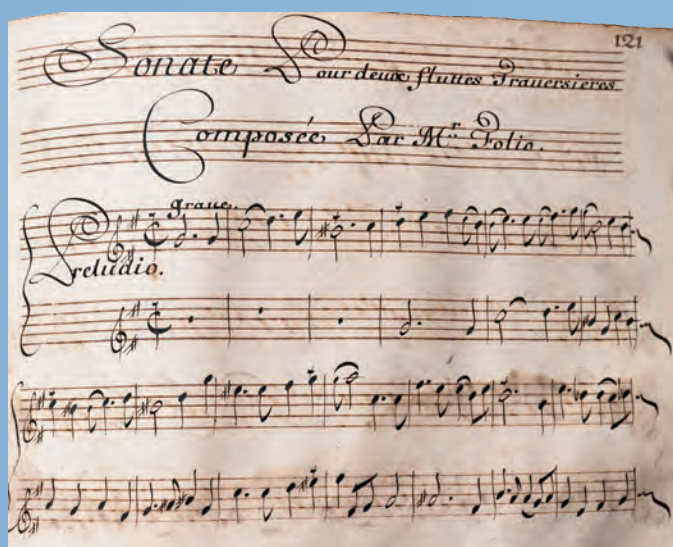 121
Sonate Pour deux fluttes Traversieres
Composée Par Mr. Folio.
grave.
Preludio.